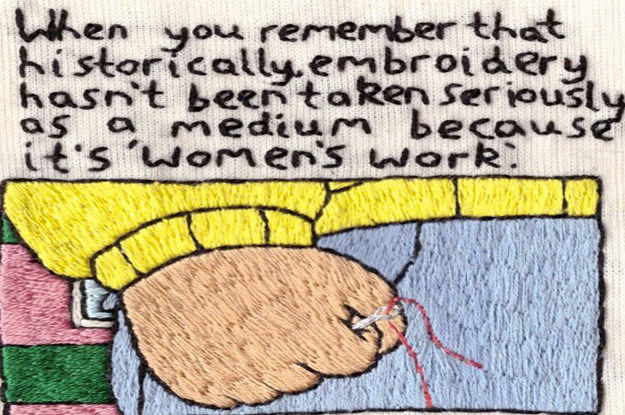 When you remember that
historically, embroidery
hasn't been taken seriously
as a medium because
it's 'women's work'.